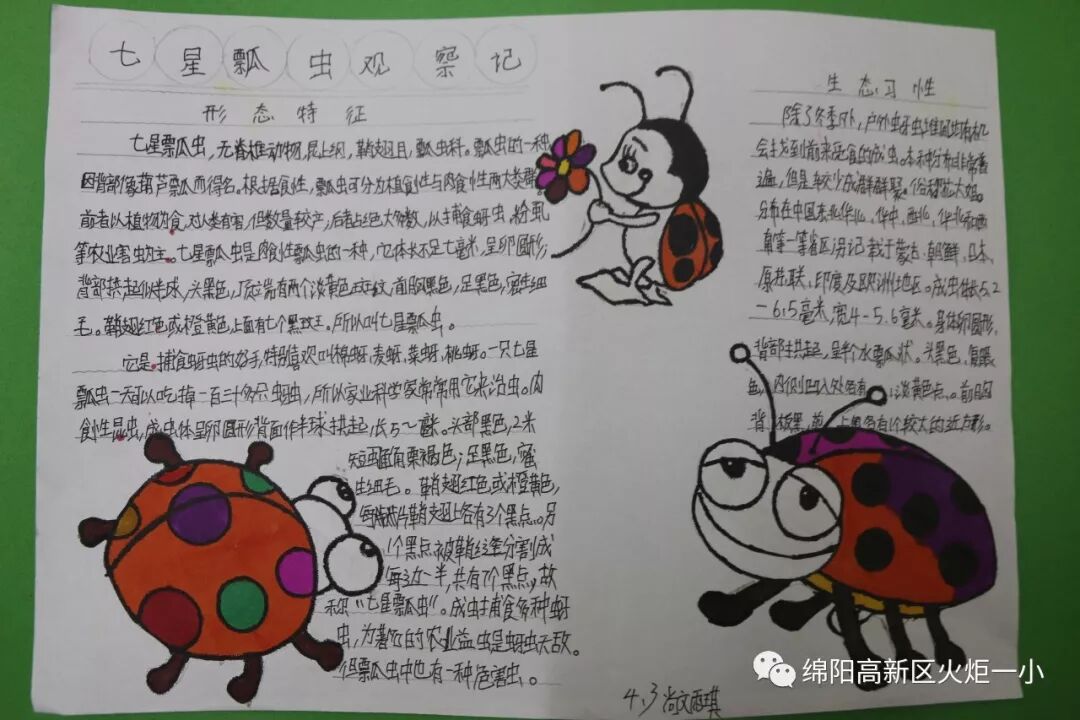 七星瓢虫观察记
形态特征
七星瓢虫，无脊椎动物，昆虫纲，鞘翅目，瓢虫科。瓢虫的一种
因背部像葫芦瓢而得名。根据食性，瓢虫可分为植食性与肉食性两大类群。
前者以植物为食，对人类有害，但数量较少，后者占绝大多数，以捕食蚜虫，粉虱
等农业害虫为主。七星瓢虫是肉食性瓢虫的一种，它体长不足七毫米，呈卵圆形，
背部拱起似半球，头黑色，顶端有两个淡黄色斑纹，前胸黑色，足黑色，密生细
毛。鞘翅红色或橙黄色，上面有七个黑斑。所以叫七星瓢虫。
它是捕食蚜虫的好手，特别喜欢叫棉蚜，麦蚜，菜蚜，桃蚜。一只七星
瓢虫一天可以吃掉一百三十多个蚜虫，所以农业科学家常常用它来治虫。肉
食性昆虫，成虫体呈卵圆形背面作半球拱起，长5～
头部黑色，2米
短触角栗褐色；足黑色，密
生细毛。鞘翅红色或橙黄色，
每片鞘翅上各有3个黑点。另
1个黑点被鞘缝分割成
每边一半，共有7个黑点，故
称“七星瓢虫”。成虫捕食多种蚜
虫，为著名的农业益虫是蚜虫天敌。
但瓢虫中也有一种危害虫。
生态习性
除了冬季外，户外蚜虫堆固有机
会找到前来觅食的成虫。本种分布非常普
遍，但是较少成群群聚。俗称花大姐。
分布在中国东北华北，华中，西北，华北和西
南等一等省区
记载于蒙古、朝鲜、日本、
原苏联、印度及欧洲地区。成虫体长5.2
－6.5毫米，宽4－5.6毫米。身体卵圆形，
背部拱起，呈半个水瓢状。头黑色，复眼
色，内侧凹入处各有
淡黄色点。前胸
背板黑，前
上角各有1个较大的近方形。
4.3 尚文雨琪
绵阳高新区火炬一小